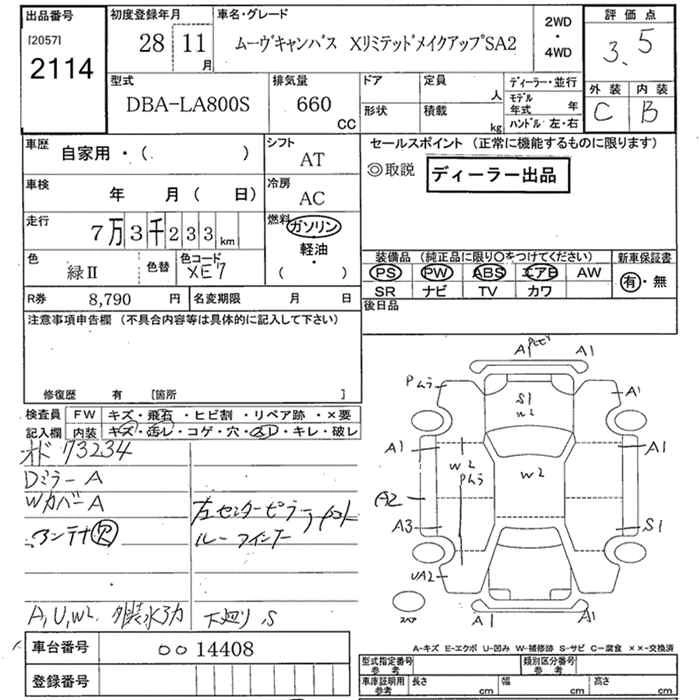 出品番号
[2057]
2114
初度登録年月
28 11月
車名・グレード
ムーヴキャンバス XリミテッドメイクアップSA2
2WD
・
4WD
評価点
3.5
外装 内装
C B
型式
DBA-LA800S
排気量
660 CC
ドア
形状
定員 人
積載 kg
ディーラー・並行
モデル年式 年
ハンドル 左・右
車歴
自家用・( )
シフト
AT
車検
年 月( 日)
冷房
AC
走行
7万3千233km
燃料
ガソリン
軽油
( )
色
緑II
色替
色コード
XE7
R券 8,790 円
名変期限 月 日
セールスポイント (正常に機能するものに限ります)
◎取説 ディーラー出品
装備品 (純正品に限り〇をつけてください)
PS PW ABS エアB AW
SR ナビ TV カワ
新車保証書
有・無
後日品
注意事項申告欄 (不具合内容等は具体的に記入して下さい)
修復歴 有 [箇所 ]
検査員
記入欄
FW キズ・飛石・ヒビ割・リペア跡・×要
内装 キズ・汚レ・コゲ・穴・スレ・キレ・破レ
オド 73234
Dミラー A
Wカバー A
アンテナ
左センターピラー
A,U,W2 外装水アカ 下廻り S
車台番号 0014408
登録番号
A1
Pムラ
A1
S1
W2
A1
A1
W2
Pムラ
W2
A2
A3
S1
UA2
スペア
A1
A1
A-キズ E-エクボ U-凹み W-補修跡 S-サビ C-腐食 ××-交換済
型式指定番号
参考
類別区分番号
参考
車庫証明用
参考
長さ cm
幅 cm
高さ cm